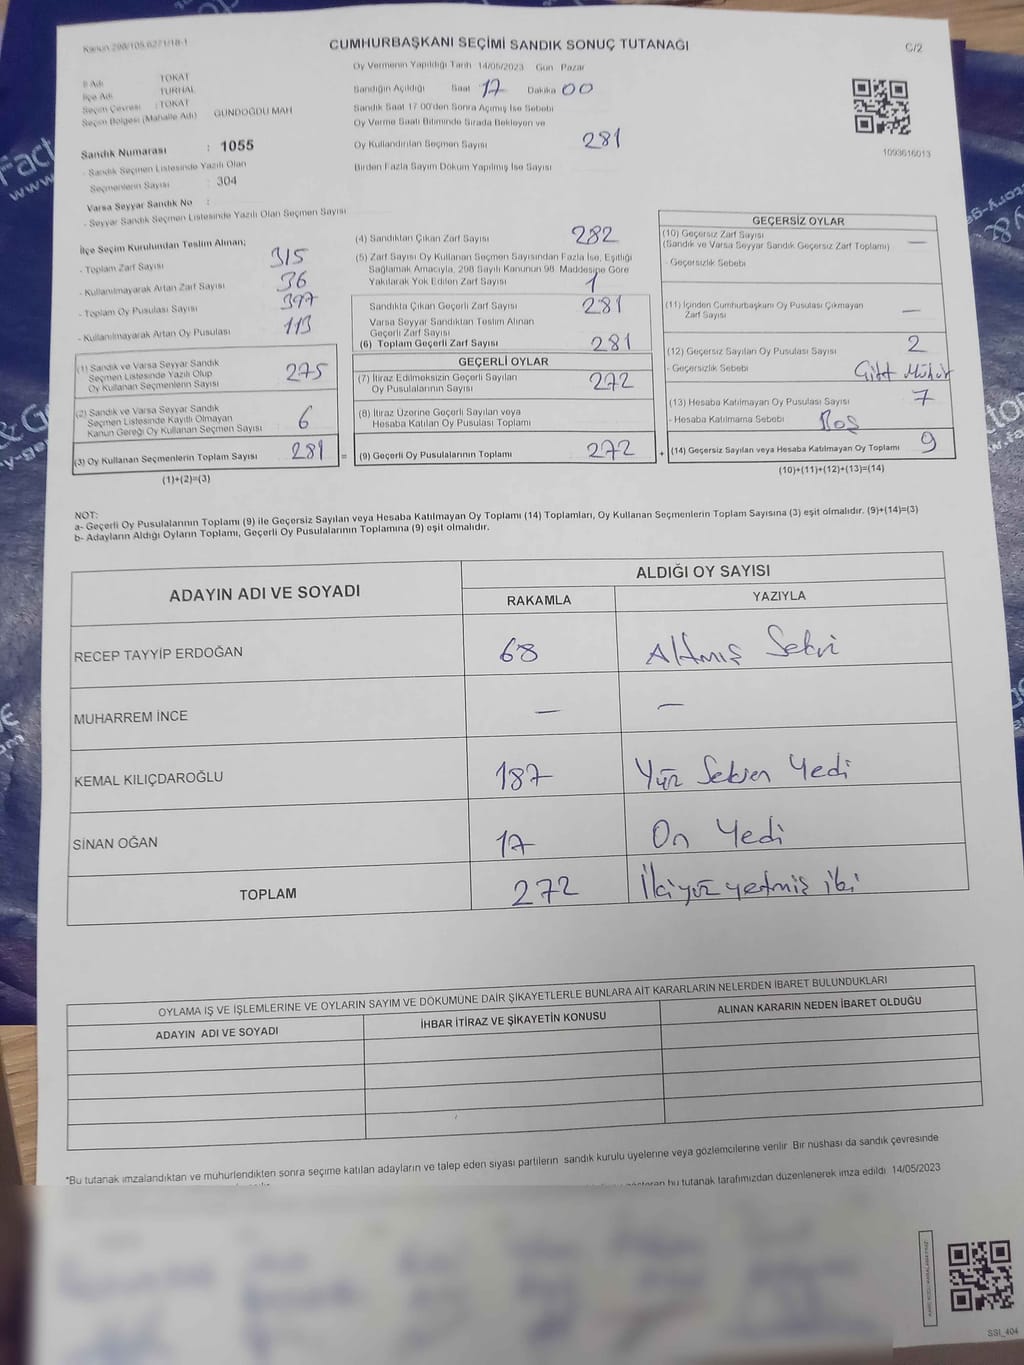 Kanun 298/105,6271/18-1
CUMHURBAŞKANI SEÇİMİ SANDIK SONUÇ TUTANAĞI
C/2
İl Adı : TOKAT
İlçe Adı : TURHAL
Seçim Çevresi : TOKAT
Seçim Bölgesi (Mahalle Adı) GÜNDOĞDU MAH
Sandık Numarası : 1055
- Sandık Seçmen Listesinde Yazılı Olan
Seçmenlerin Sayısı : 304
Varsa Seyyar Sandık No :
- Seyyar Sandık Seçmen Listesinde Yazılı Olan Seçmen Sayısı
Oy Vermenin Yapıldığı Tarih 14/05/2023 Gün Pazar
Sandığın Açıldığı Saat 17 Dakika 00
Sandık Saat 17 00'den Sonra Açımış İse Sebebi
Oy Verme Saati Bitiminde Sırada Bekleyen ve
Oy Kullandırılan Seçmen Sayısı 281
Birden Fazla Sayım Döküm Yapılmış İse Sayısı
1093616013
İlçe Seçim Kurulundan Teslim Alınan;
- Toplam Zarf Sayısı 315
- Kullanılmayarak Artan Zarf Sayısı 36
- Toplam Oy Pusulası Sayısı 397
- Kullanılmayarak Artan Oy Pusulası 113
(1) Sandık ve Varsa Seyyar Sandık
Seçmen Listesinde Yazılı Olup
Oy Kullanan Seçmenlerin Sayısı 275
(2) Sandık ve Varsa Seyyar Sandık
Seçmen Listesinde Kayıtlı Olmayan
Kanun Gereği Oy Kullanan Seçmen Sayısı 6
(3) Oy Kullanan Seçmenlerin Toplam Sayısı 281 =
(1)+(2)=(3)
(4) Sandıktan Çıkan Zarf Sayısı 282
(5) Zarf Sayısı Oy Kullanan Seçmen Sayısından Fazla İse, Eşitliği
Sağlamak Amacıyla, 298 Sayılı Kanunun 98. Maddesine Göre
Yakılarak Yok Edilen Zarf Sayısı 1
Sandıkta Çıkan Geçerli Zarf Sayısı 281
Varsa Seyyar Sandıktan Teslim Alınan
Geçerli Zarf Sayısı
(6) Toplam Geçerli Zarf Sayısı 281
GEÇERLİ OYLAR
(7) İtiraz Edilmeksizin Geçerli Sayılan
Oy Pusulalarının Sayısı 272
(8) İtiraz Üzerine Geçerli Sayılan veya
Hesaba Katılan Oy Pusulası Toplamı
(9) Geçerli Oy Pusulalarının Toplamı 272 +
GEÇERSİZ OYLAR
(10) Geçersiz Zarf Sayısı —
(Sandık ve Varsa Seyyar Sandık Geçersiz Zarf Toplamı)
- Geçersizlik Sebebi
(11) İçinden Cumhurbaşkanı Oy Pusulası Çıkmayan
Zarf Sayısı —
(12) Geçersiz Sayılan Oy Pusulası Sayısı 2
- Geçersizlik Sebebi Çift Mühür
(13) Hesaba Katılmayan Oy Pusulası Sayısı 7
- Hesaba Katılmama Sebebi Boş
(14) Geçersiz Sayılan veya Hesaba Katılmayan Oy Toplamı 9
(10)+(11)+(12)+(13)=(14)
NOT:
a- Geçerli Oy Pusulalarının Toplamı (9) ile Geçersiz Sayılan veya Hesaba Katılmayan Oy Toplamı (14) Toplamları, Oy Kullanan Seçmenlerin Toplam Sayısına (3) eşit olmalıdır. (9)+(14)=(3)
b- Adayların Aldığı Oyların Toplamı, Geçerli Oy Pusulalarının Toplamına (9) eşit olmalıdır.
ADAYIN ADI VE SOYADI
ALDIĞI OY SAYISI
RAKAMLA YAZIYLA
RECEP TAYYİP ERDOĞAN 68 Altmış Sekiz
MUHARREM İNCE — —
KEMAL KILIÇDAROĞLU 187 Yüz Seksen Yedi
SİNAN OĞAN 17 On Yedi
TOPLAM 272 İkiyüz yetmiş iki
OYLAMA İŞ VE İŞLEMLERİNE VE OYLARIN SAYIM VE DÖKÜMÜNE DAİR ŞİKAYETLERLE BUNLARA AİT KARARLARIN NELERDEN İBARET BULUNDUKLARI
ADAYIN ADI VE SOYADI İHBAR İTİRAZ VE ŞİKAYETİN KONUSU ALINAN KARARIN NEDEN İBARET OLDUĞU
*Bu tutanak imzalandıktan ve mühürlendikten sonra seçime katılan adayların ve talep eden siyasi partilerin sandık kurulu üyelerine veya gözlemcilerine verilir Bir nüshası da sandık çevresinde
bu tutanak tarafımızdan düzenlenerek imza edildi 14/05/2023
SSI_404